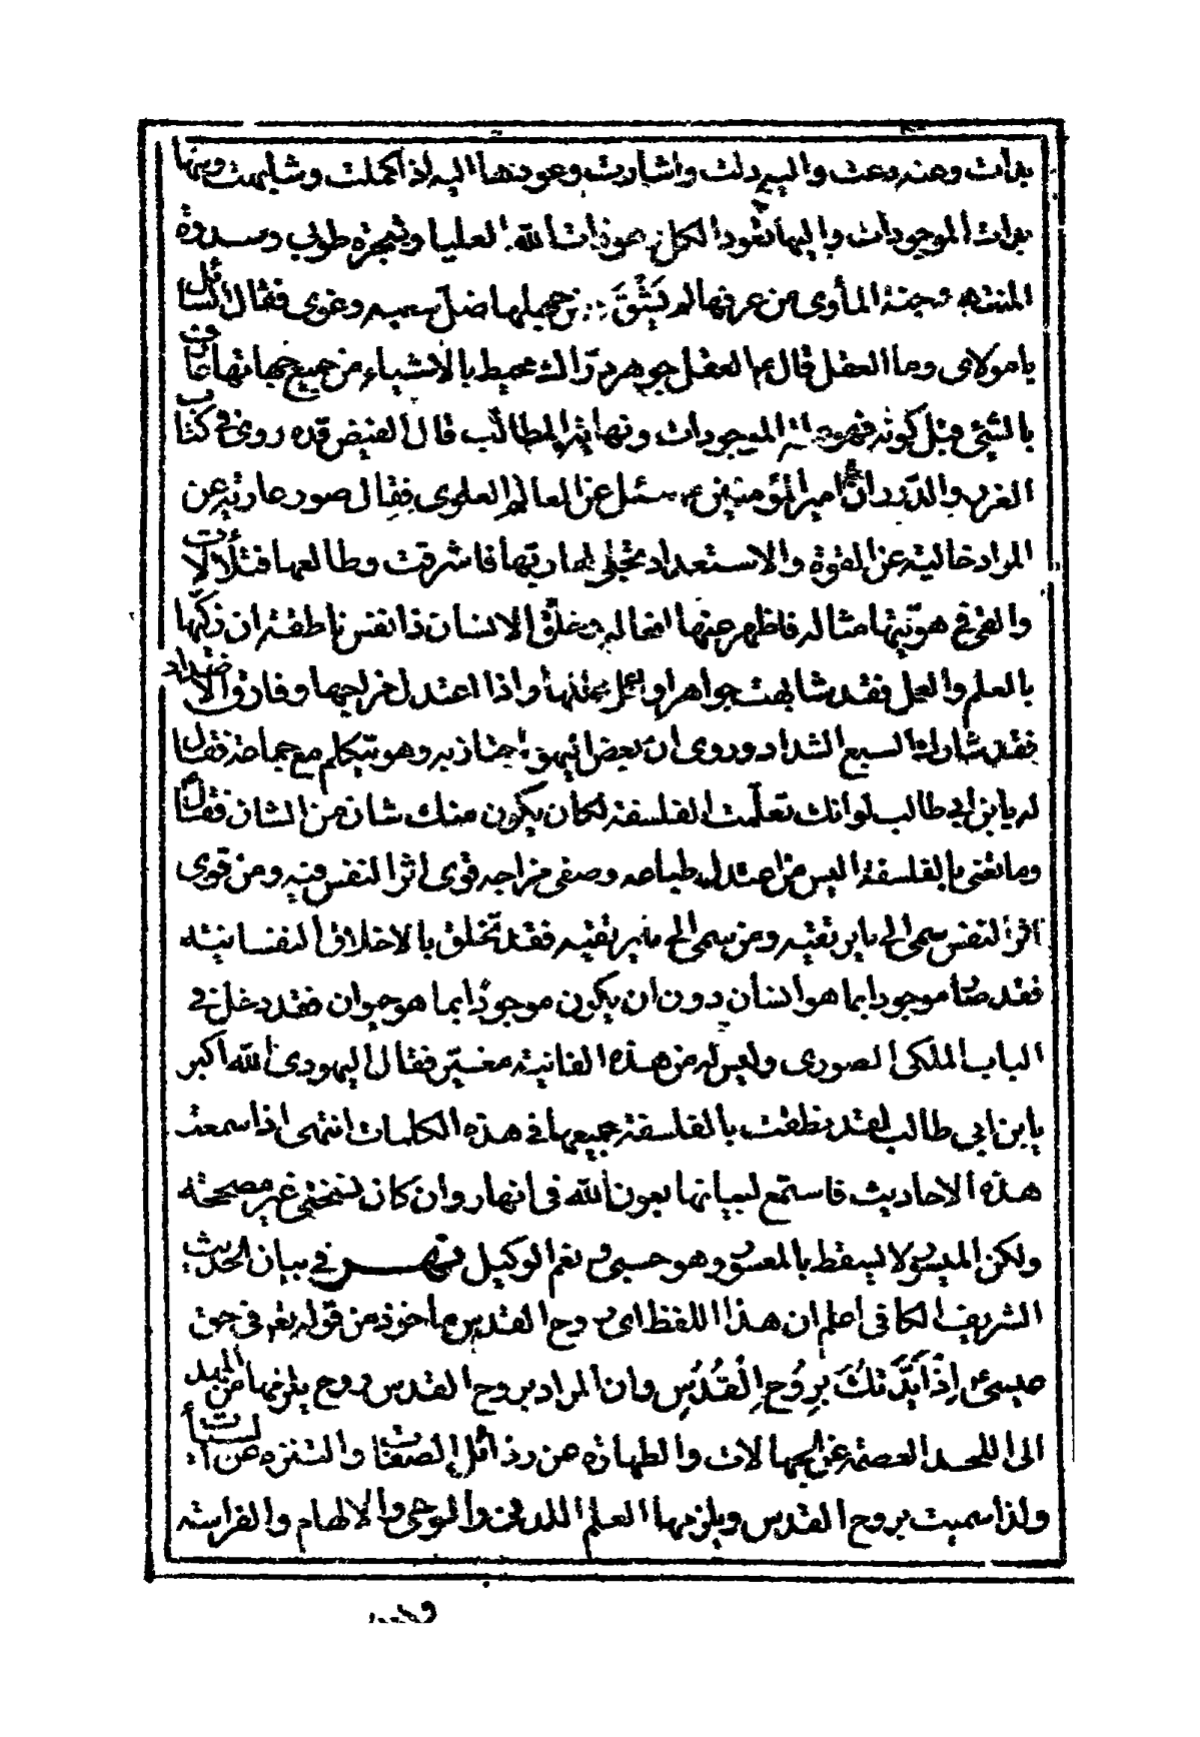 بدأت وعنه دعت واليه دلت واشارت وعودتها اليه اذا كملت وشابهت ومنها
بدأت الموجودات واليها تعود بالكمال هو ذات الله العليا وشجرة طوبى وسدرة
المنتهى وجنة المأوى من عرفها لم يَشْقَ ومن جهلها ضلّ سعيه وغوى فقال السائل
يا مولاى وما العقل قال ع العقل جوهر درّاك محيط بالاشياء من جميع جهاتها عارف
بالشئ قبل كونه فهو علة الموجودات ونهاية المطالب قال الفيض قده روى فى كتاب
الغرر والدّرر ان امير المؤمنين ع سئل عن العالم العلوى فقال صور عارية عن
المواد خالية عن القوة والاستعداد تجلى لها ربها فاشرقت وطالعها فتلألأت
والقى فى هويّتها مثاله فاظهر عنها افعاله وخلق الانسان ذا نفس ناطقة ان زكّيها
بالعلم والعمل فقد شابهت جواهر اوايل عللها واذا اعتدل مزاجها وفارق الاضداد
فقد شارك السبع الشداد وروى ان بعض اليهود اجتاز به وهو يتكلم مع جماعة فقال
له يا بن ابى طالب لو انك تعلّمت الفلسفة لكان يكون منك شان من الشان فقال ع
وما تعنى بالفلسفة اليس من اعتدل طباعه وصفى مزاجه قوى اثر النفس فيه ومن قوى
اثر النفس سمى الى ما يرتقيه ومن سمى الى ما يرتقيه فقد تخلق بالاخلاق النفسانية
فقد صار موجودا بما هو انسان دون ان يكون موجودًا بما هو حيوان فقد دخل فى
الباب الملكى الصورى وليس له من هذه الغانية مغيّر فقال اليهودى الله اكبر
يابن ابى طالب لقد نطقت بالفلسفة جميعها فى هذه الكلمات انتهى اذا سمعت
هذه الاحاديث فاستمع لبيانها بعون الله فى انهار وان كان نسختى غير مصححة
ولكن الميسور لا يسقط بالمعسور وهو حسبى و نعم الوكيل نهر فى بيان الحديث
الشريف الكافى اعلم ان هذا اللفظ اى روح القدس مأخوذ من قوله تعه فى حق
عيسى ع اِذْ اَيَّدْتُكَ بِرُوحِ الْقُدُسِ وان المراد بروح القدس روح يلزمها من المهد
الى اللحد العصمة عن الجهالات والطهارة عن رذائل الصفات والتنزه عن
ولذا سميت بروح القدس ويلزمها العلم اللدنى والوحى والالهام والفراسة